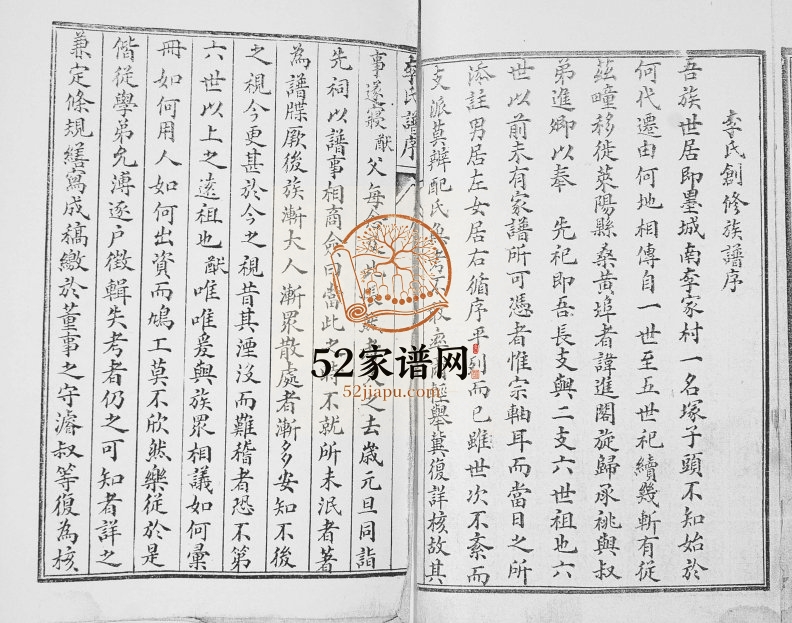 李氏創修族譜序
吾族世居即墨城南李家村一名塚子頭不知始於
何代遷由何地相傳自一世至五世祀續幾斬有從
茲疃移徙萊陽縣桑黃埠者諱進閣旋歸承祧與叔
弟進卿以奉 先祀即吾長支與二支六世祖也六
世以前未有家譜所可憑者惟宗軸耳而當日之所
添註男居左女居右循序平列而已雖世次不紊而
支派莫辨配氏 舉冀復詳核故其
李氏譜序
事遂寢猷父每 之去歲元旦同詣
先祠以譜事相商僉曰當此 不就所未泯者著
為譜牒厥後族漸大人漸眾散處者漸多安知不後
之視今更甚於今之視昔其湮沒而難稽者恐不第
六世以上之遠祖也猷唯唯爰與族眾相議如何彙
冊如何用人如何出資而鳩工莫不欣然樂從於是
偕從學弟允溥逐戶徵輯失考者仍之可知者詳之
兼定條規繕寫成稿繳於董事之守濬叔等復為核
52家谱网
52jiapu.com